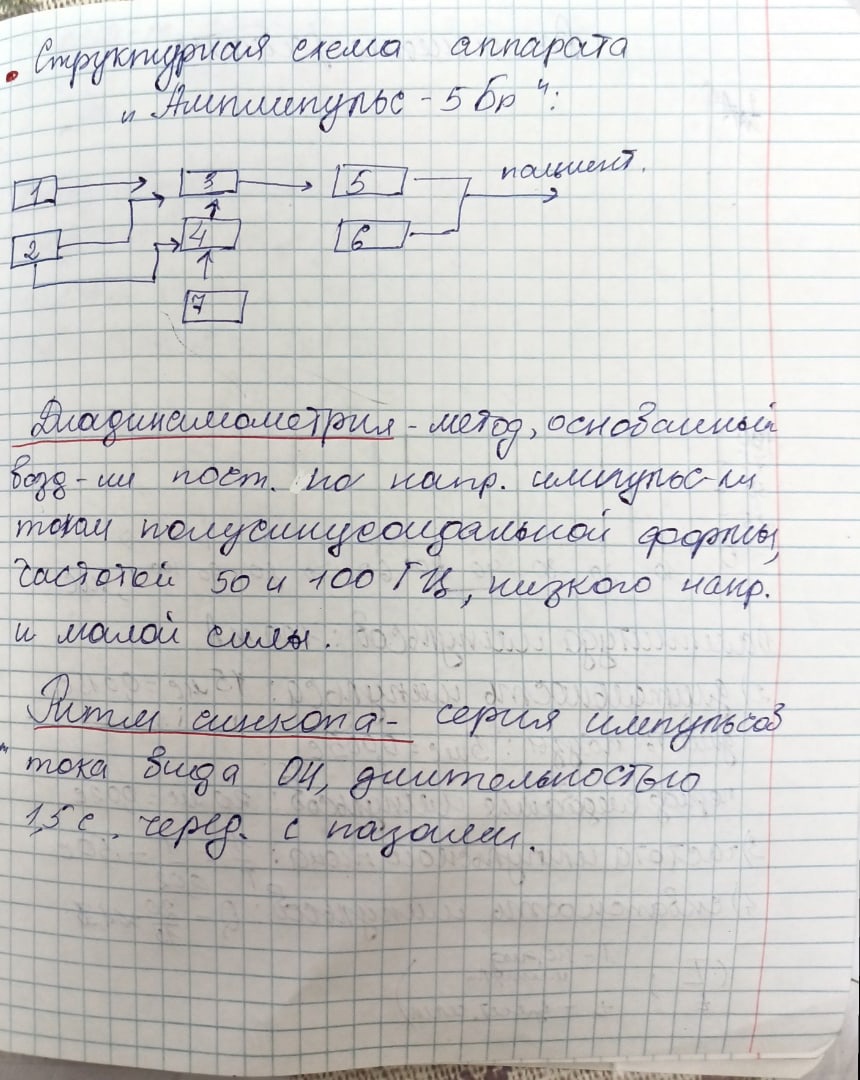 Структурная схема аппарата
„Амплипульс - 5 Бр":
1
3
5
пациент.
2
4
6
7
Диадинамометрия - метод, основанный
возд-ии пост. по напр. импульс-ми
током полусинусоидальной формы,
частотой 50 и 100 ГЦ, низкого напр.
и малой силы.
Ритм синкопа - серия импульсов
тока вида ОН, длительностью
1,5 с. черед. с паузами.